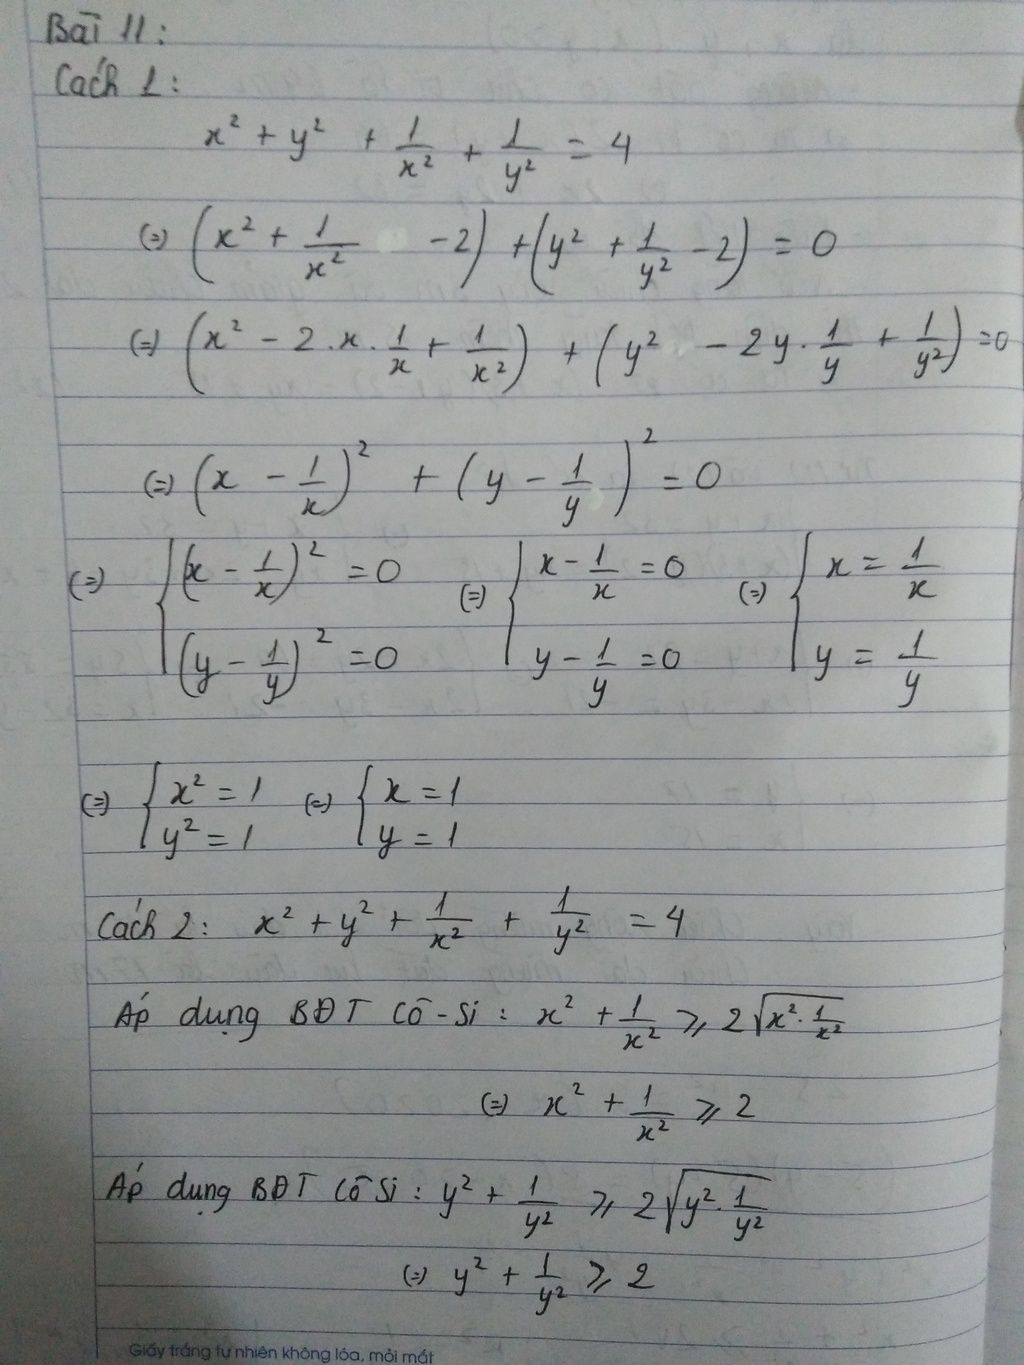 Bài 11:
Cách 1:
x² + y² + 1/x² + 1/y² = 4
(=) (x² + 1/x² - 2) + (y² + 1/y² - 2) = 0
(=) (x² - 2.x.1/x + 1/x²) + (y² - 2y.1/y + 1/y²) = 0
(=) (x - 1/x)² + (y - 1/y)² = 0
(=) { (x - 1/x)² = 0 (=) { x - 1/x = 0 (=) { x = 1/x
(y - 1/y)² = 0 y - 1/y = 0 y = 1/y
(=) { x² = 1 (=) { x = 1
y² = 1 y = 1
Cách 2: x² + y² + 1/x² + 1/y² = 4
Áp dụng BĐT Cô-Si: x² + 1/x² ⩾ 2√(x².1/x²)
(=) x² + 1/x² ⩾ 2
Áp dụng BĐT Cô Si: y² + 1/y² ⩾ 2√(y².1/y²)
(=) y² + 1/y² ⩾ 2
Giấy trắng tự nhiên không lóa, mỏi mắt